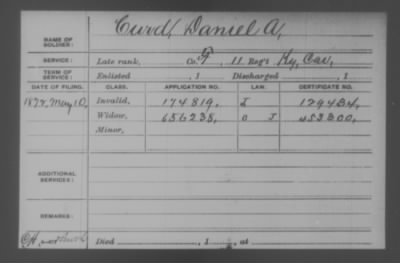 NAME OF SOLDIER: Curd, Daniel A,
SERVICE: Late rank, Co. F, 11 Reg't Ky, Cav,
TERM OF SERVICE: Enlisted , 1 Discharged , 1
DATE OF FILING. CLASS. APPLICATION NO. LAW. CERTIFICATE NO.
1872, May 10, Invalid, 174819, I 129434,
Widow, 656238, O J 453300,
Minor,
ADDITIONAL SERVICES:
REMARKS:
Died , 1 , at